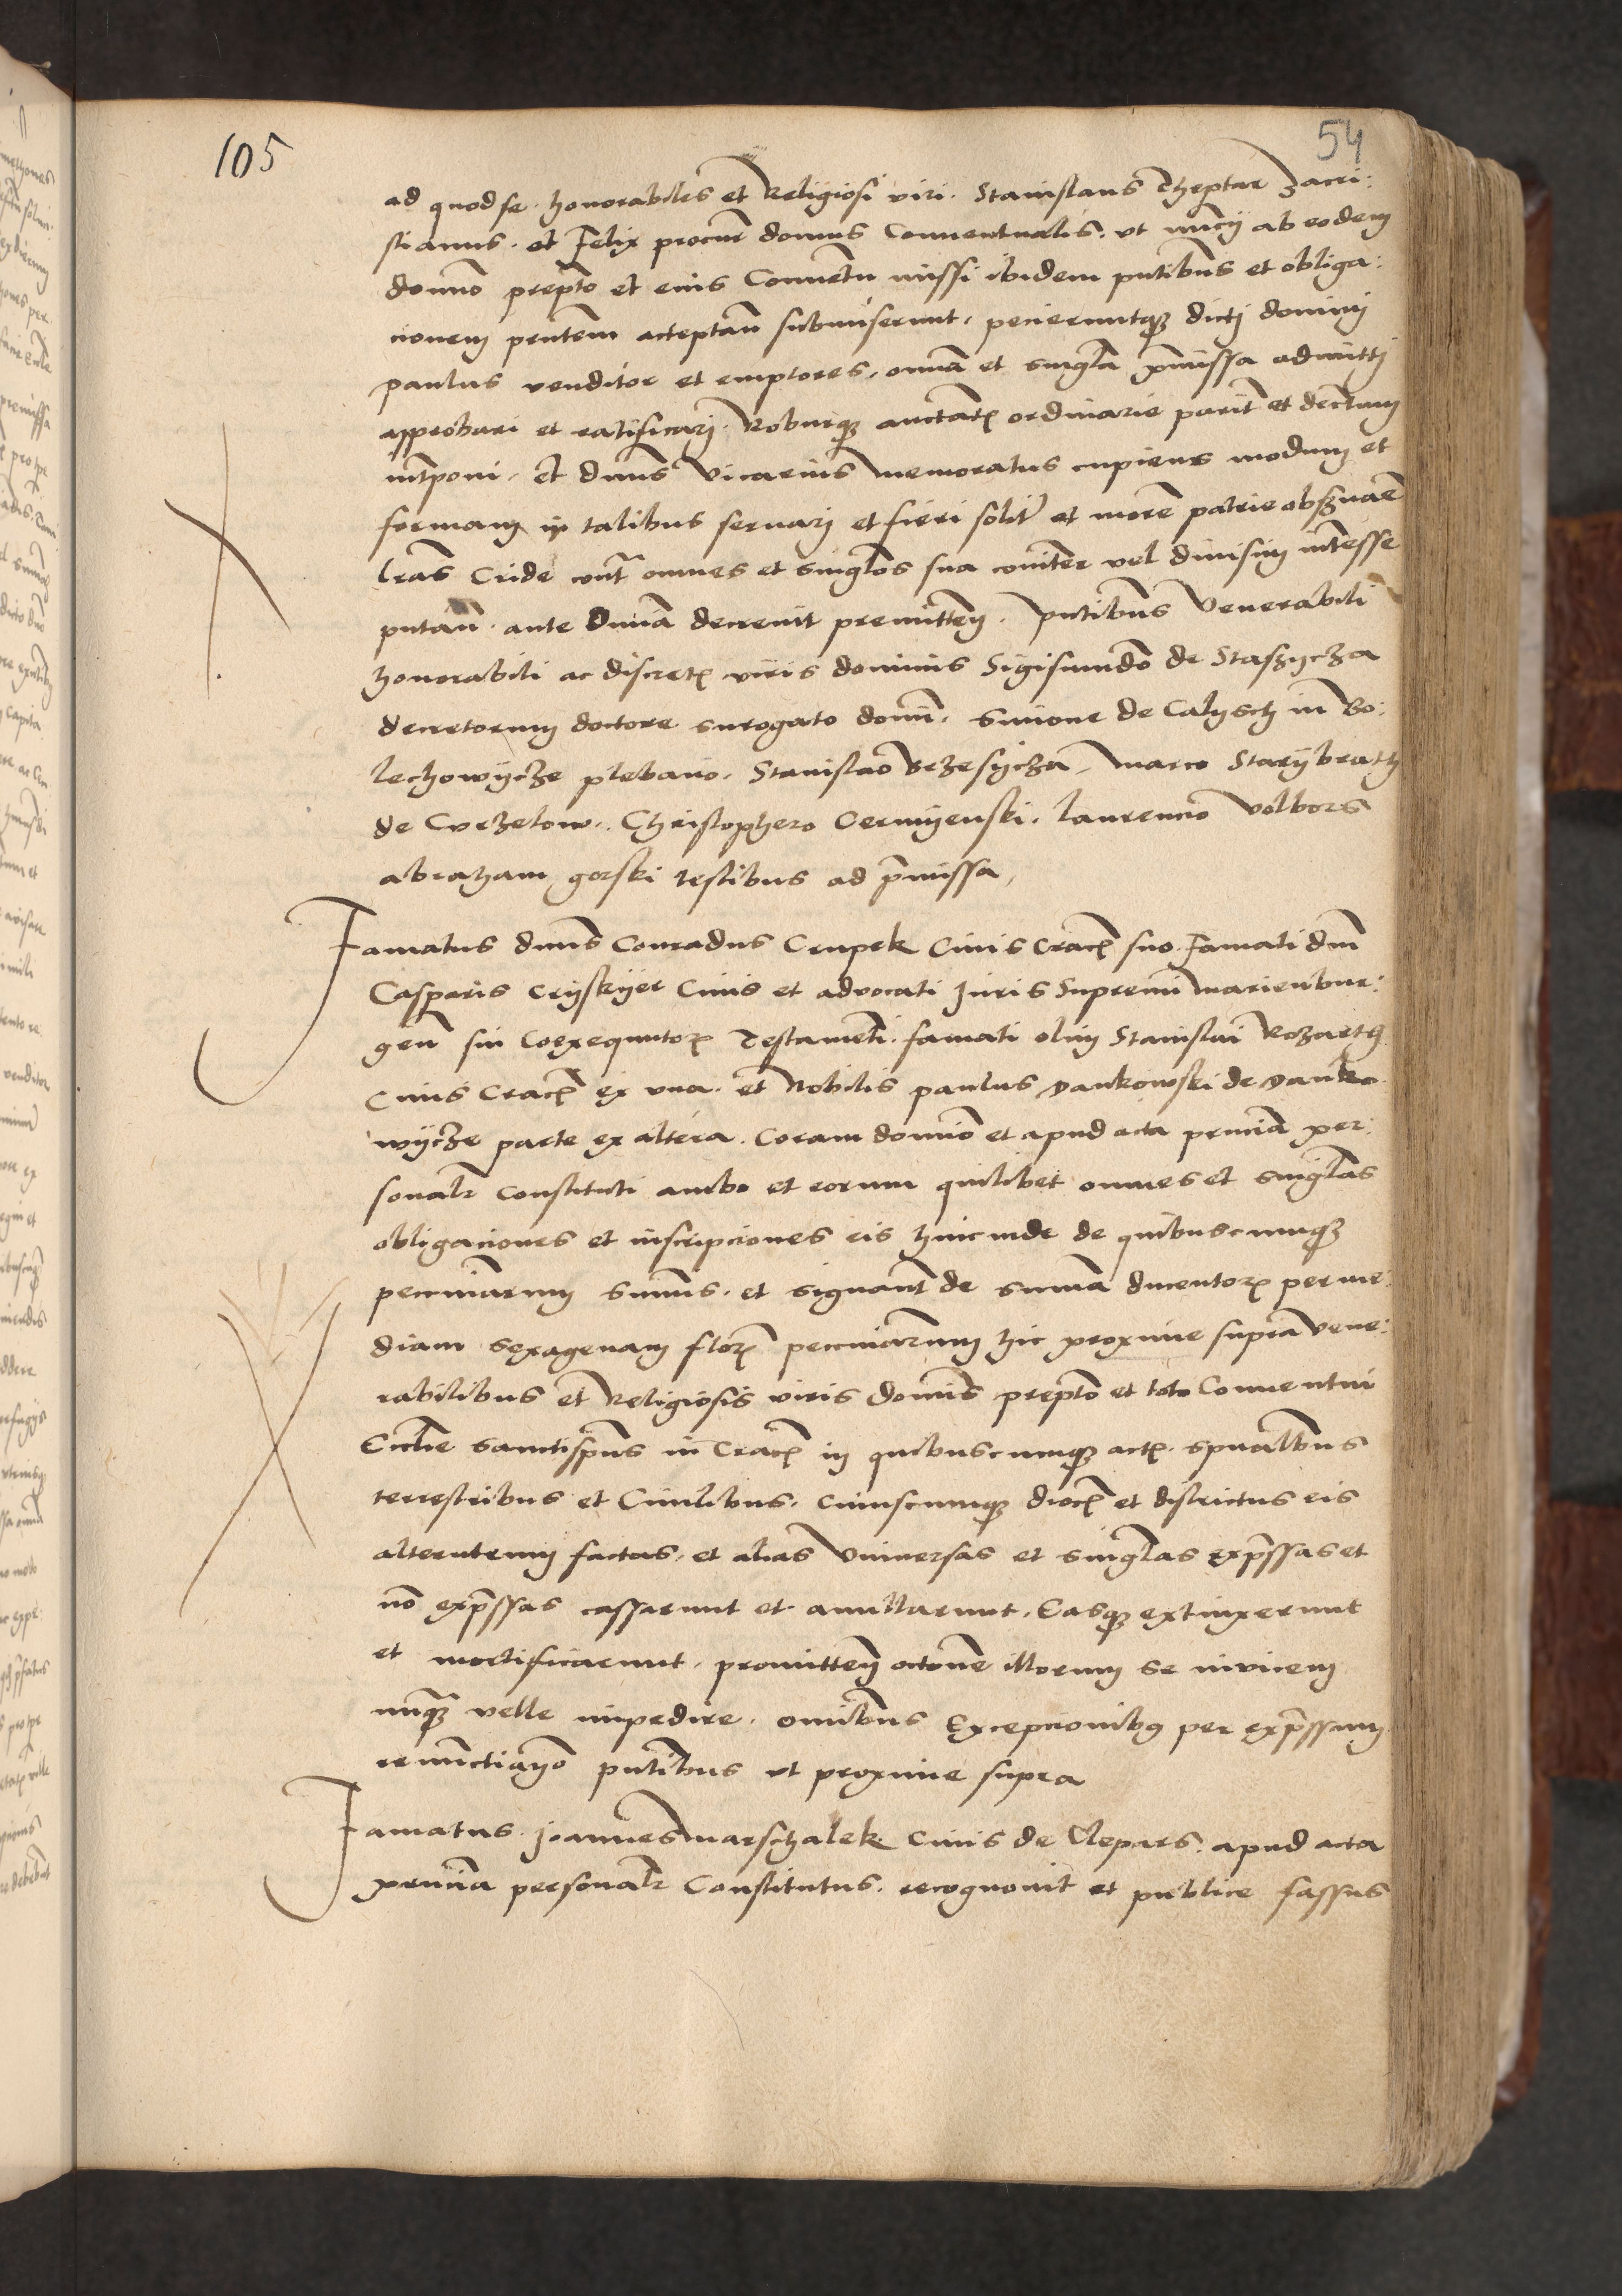 105
54
ad quod se honorabiles et Religiosi viri. Stanislaus Cheptar Zacri:
stianus. et Felix procur domus Conventualis. ut nuncij ab eodem
domno prepto et eius Conuetu missi ibidem pntibus et obliga:
cionem pentem acceptan submiserunt. pecieruntqz dicti dominj
paulus venditor et emptores. omia et singla pmissa admittj
approbari et ratificarj. Roburqz auctatis ordinarie parit et dectum
intponi. Et dnus Vicarius memoratus cupiens modum et
formam in talibus seruarj et fieri solit et more patrie obseruare
lras Cride cont omnes et singlos sua coniter vel diuisim intesse
putan. ante omia decreuit premitten. pntibus Venerabili
honorabili ac discretis viris dominis Sigismundo de Staszycza
decretorum doctore surogato domi. Simone de Calysch in Bo:
lechowycze plebano. Stanislao Brzesycza. Marco Starybrath
de Curzelow. Christophero Cermyenski. laurencio Volbors
abraham gorski testibus ad pmissa
Famatus dnus Conradus Crupek Ciuis Cracis suo. Famati dni
Casparis Cryskyer Ciuis et advocati Juris Supremi marienbur:
gen sui Coexequutoris Testamenti. famati olim Stanislai Rozarth
Ciuis Cracis ex una. et Nobilis paulus Dankowski de Danko
wycze parte ex altera. Coram domio et apud acta pmia per:
sonalr constituti ambo et eorum quilibet omnes et singlas
obligaciones et inscripciones eis hincinde de quibuscumqz
pecuniarum sumis. et signant de suma ducentoris per me:
diam sexagenam floris pecuniarum hic proxime supra Vene:
rabilibus et Religiosis viris domis prepto et toto Conuentui
Ecclie sanctispus in Cracis in quibuscumqz actis. spualbus
terrestribus et Ciuilibus. cuiuscumqz diocis et districtus eis
alterutrum factas. et alias Vniuersas et singlas expssas et
no expssas cassarunt et anullarunt. Easqz extinxerunt
et mortificarunt. promitten actone illorum se inuicem
nuqz velle impedire. omibus Excepcionibus per expssum
renunctiando pntibus ut proxime supra
Famatus. Joannes marschalek. Ciuis de Clepars. apud acta
pnmia personalr Constitutus. recognouit et publice fassus